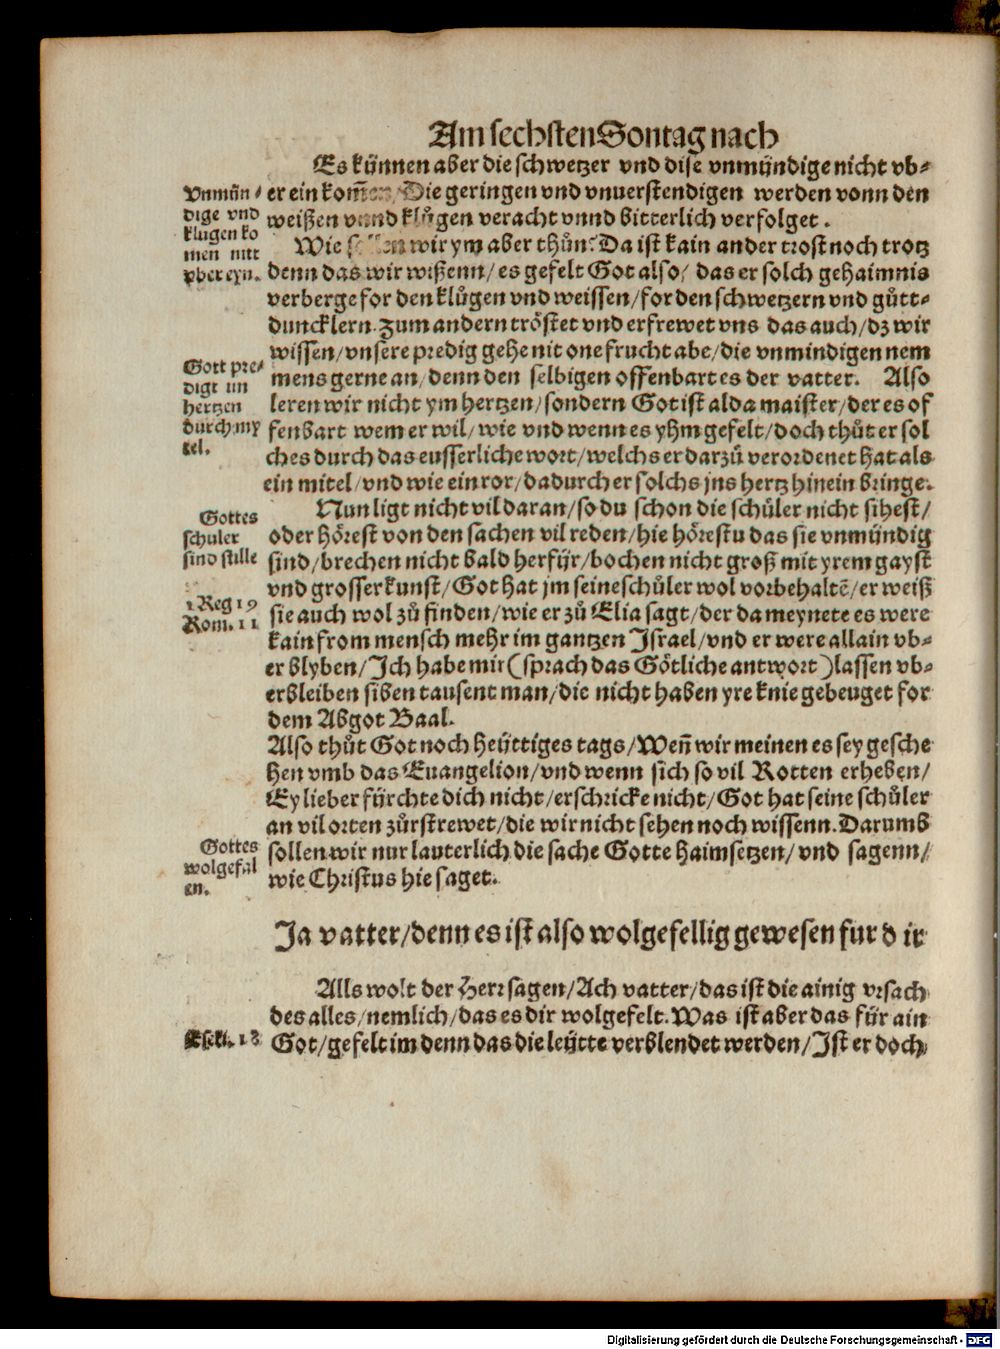 Am sechsten Sontag nach
Es künnen aber die schwetzer vnd dise vnmündige nicht vb-
er ein kom̃en/ Die geringen vnd vnuerstendigen werden vonn den
weißen vnnd klůgen veracht vnnd bitterlich verfolget.
Vnmün-
dige vnd
klugen ko
men nitt
vber eyn.
Wie sollen wir ym aber thůn? Da ist kain ander trost noch trotz
denn das wir wißenn/ es gefelt Got also/ das er solch gehaimnis
verberge for den klůgen vnd weissen/ for den schwetzern vnd gůtt-
duncklern. Zum andern tröstet vnd erfrewet vns das auch/ dz wir
wissen/ vnsere predig gehe nit one frucht abe/ die vnmindigen nem
mens gerne an/ denn den selbigen offenbart es der vatter. Also
leren wir nicht ym hertzen/ sondern Got ist alda maister/ der es of
fenbart wem er wil/ wie vnd wenn es yhm gefelt/ doch thůt er sol
ches durch das eusserliche wort/ welchs er darzů verordenet hat als
ein mitel/ vnd wie ein ror/ dadurch er solchs jns hertz hinein bringe.
Gott pre-
digt im
hertzen
durch my
tel.
Nun ligt nicht vil daran/ so du schon die schůler nicht sihest/
oder hörest von den sachen vil reden/ hie hörestu das sie vnmündig
sind/ brechen nicht bald herfür/ bochen nicht groß mit yrem gayst
vnd grosser kunst/ Got hat jm seine schůler wol vorbehaltẽ/ er weiß
sie auch wol zů finden/ wie er zů Elia sagt/ der da meynete es were
kain from mensch mehr im gantzen Israel/ vnd er were allain vb-
er blyben/ Ich habe mir (sprach das Götliche antwort) lassen vb-
erbleiben siben tausent man/ die nicht haben yre knie gebeuget for
dem Abgot Baal.
Gottes
schuler
sind stille
1 Reg 19
Rom. 11
Also thůt Got noch heüttiges tags/ Weñ wir meinen es sey gesche
hen vmb das Euangelion/ vnd wenn sich so vil Rotten erheben/
Ey lieber fürchte dich nicht/ erschricke nicht/ Got hat seine schůler
an vil orten zůrstrewet/ die wir nicht sehen noch wissenn. Darumb
sollen wir nur lauterlich die sache Gotte haimsetzen/ vnd sagenn/
wie Christus hie saget.
Gottes
wolgefal
en.
Ja vatter/ denn es ist also wolgefellig gewesen fur dir
Alls wolt der Herr sagen/ Ach vatter/ das ist die ainig vrsach
des alles/ nemlich/ das es dir wolgefelt. Was ist aber das für ain
Got/ gefelt im denn das die leütte verblendet werden/ Ist er doch
18
Digitalisierung gefördert durch die Deutsche Forschungsgemeinschaft - DFG